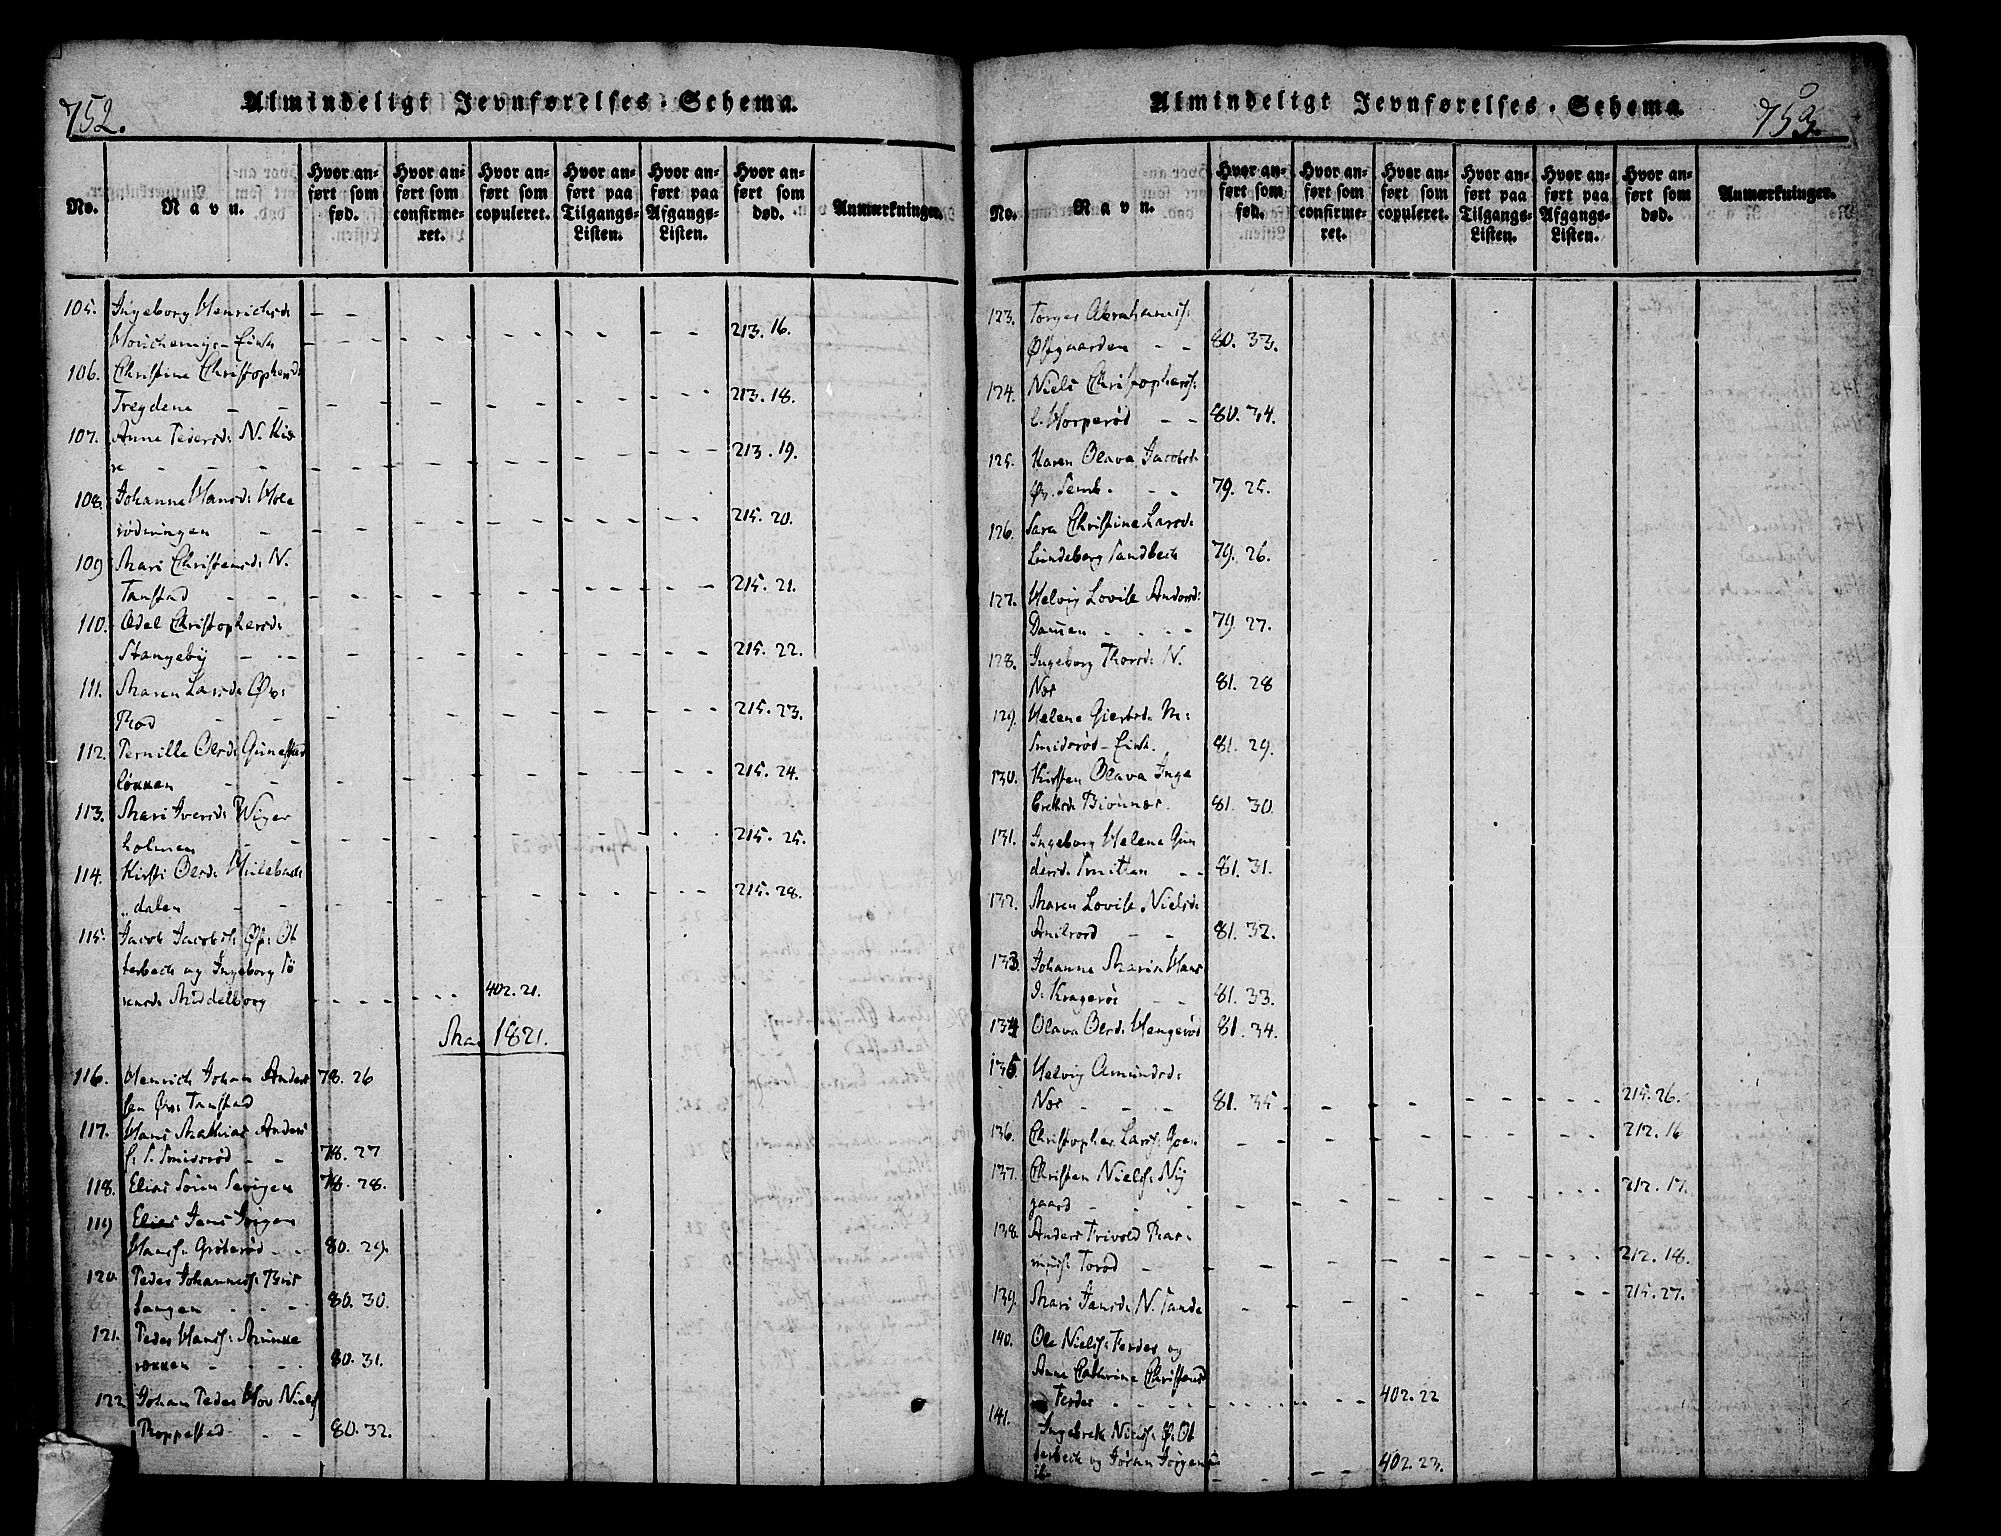 752.
Almindeligt Jevnførelses-Schema.
No.
Navn.
Hvor anført som fød.
Hvor anført som confirmeret.
Hvor anført som copuleret.
Hvor anført paa Tilgangs-Listen.
Hvor anført paa Afgangs-Listen.
Hvor anført som død.
Anmærkninger.
105. Ingeborg Henrichsd:
213. 16.
106. Christine Christophersd:
Treydene 213. 18.
107. Anne Pedersd: N. Kiæ
re 213. 19.
108. Johanne Hansd: Hole
rødningen 215. 20.
109 Mari Christensd: N.
Tanstad 215. 21.
110. Adel Christophersd:
Stangeby 215. 22.
111. Maren Larsd: Øv:
Rød 215. 23.
112. Pernille Olsd: Gunestad
løkken 215. 24.
113. Mari Iversd: Wiger
holmen 215. 25.
114. Kirsti Olsd:
dalen 215. 28.
115. Jacob Jacobs: Øv: Ot
terbech og Ingeborg Sø
rensd: Middelborg 402. 21.
Mai 1821.
116. Henrich Johan Anders 78. 26
sen Øv: Tanstad
117. Hans Mathias Anders
S: S. Smidsrød 78. 27
118. Elias Søren Sevigen 78. 28.
119 Elias Jens Jørgen
Hanss: Grøterød 80. 29.
120. Peder Johanness:
80. 30.
121. Peder Hanss: Munke
røkken 80. 31.
122 Johan Peder Hov Niels
Roppestad 80. 32.
753.
Almindeligt Jevnførelses-Schema.
No.
Navn.
Hvor anført som fød.
Hvor anført som confirmeret.
Hvor anført som copuleret.
Hvor anført paa Tilgangs-Listen.
Hvor anført paa Afgangs-Listen.
Hvor anført som død.
Anmærkninger.
123. Torger Abrahams:
Østgaarden 80. 33.
124. Niels Christophers:
L. Horperød 80. 34.
125. Karen Olava Jacobsd:
Øv. Semb. 79. 25.
126. Sara Christine Larsd:
Lindeborg Sandbech 79. 26.
127. Helvig Lovise Andersd:
79. 27.
128. Ingeborg Thorsd: N.
Nøs 81. 28
129. Helene Giertsd: M:
Smidsrød-Eirh. 81. 29.
130. Kirsten Olava Inge
brektsd: Biønnes. 81. 30.
131. Ingeborg Helene Gun
dersd: Smitten 81. 31.
132. Maren Lovise Nielsd:
Amilrød 81. 32.
133. Johanne Marie Hans
d. Kragerøe 81. 33.
134 Olava Olsd: Hengerød 81. 34.
135. Helvig Amundsd:
Nøs 81. 35 215. 26.
136. Christopher Larss: Goen 212. 16
137. Christen Niels: Ny
gaard 212. 17.
138. Anders Trivold Ras-
muss: Torød 212. 18.
139. Mari Jansd: N. Sande 215. 27.
140. Ole Nielss: Ferder og
Anne Cathrine Christensd
Ferder 402. 22
141. Ingebrek Nielss: Ø. Ot
terbech og Jøran Jørgens
402. 23.